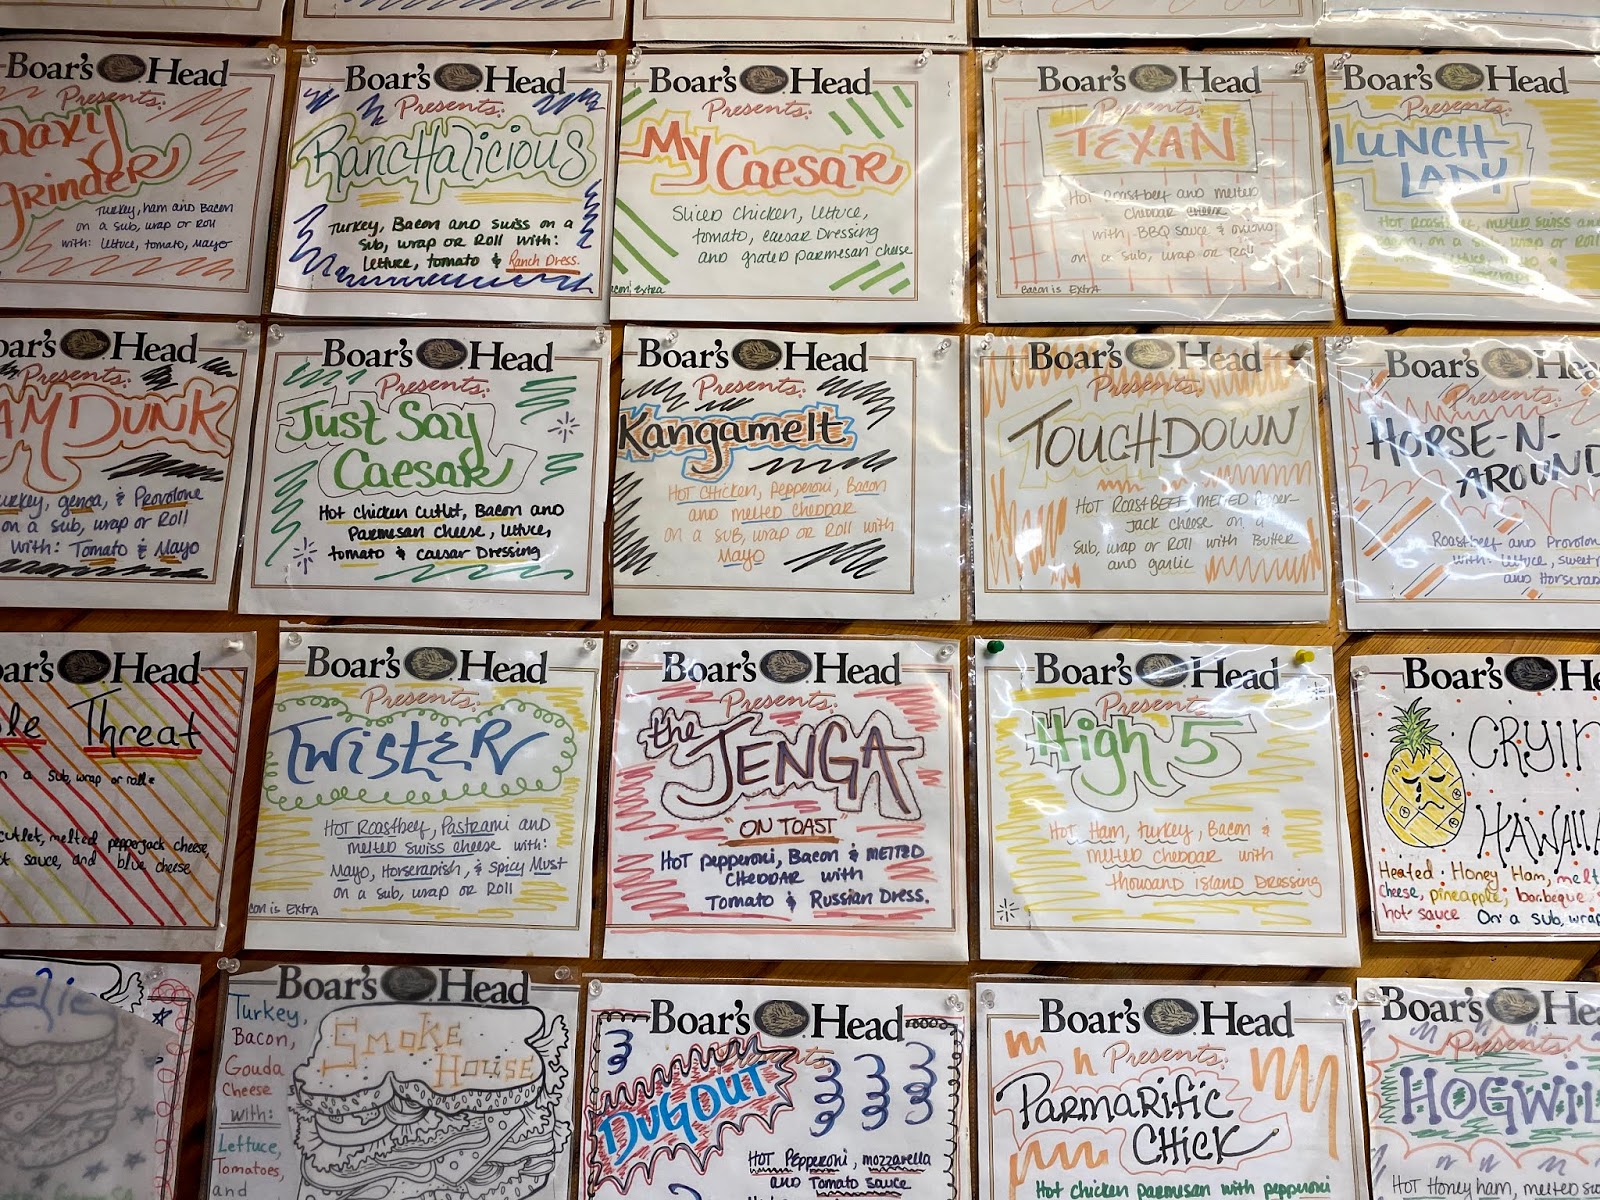 Boar's Head
Presents:
Grinder
Turkey, ham and Bacon
on a sub, wrap or Roll
with: lettuce, tomato, mayo
Boar's Head
Presents:
RancHalicious
Turkey, Bacon and swiss on a
sub, wrap or Roll with:
lettuce, tomato & Ranch Dress.
Boar's Head
Presents:
My Caesar
Sliced chicken, lettuce,
tomato, caesar Dressing
and grated parmesan cheese
extra
Boar's Head
Presents:
TEXAN
Hot roastbeef and melted
cheddar cheese
with BBQ sauce & onions
on a sub, wrap or Roll
Bacon is ExtrA
Boar's Head
Presents:
LUNCH
LADY
Hot Roastbeef, melted swiss and
bacon, on a sub, wrap or Roll
Head
Presents:
DUNK
turkey, genoa, & Provolone
on a sub, wrap or Roll
with: Tomato & Mayo
Boar's Head
Presents:
Just Say
Caesar
Hot chicken cutlet, Bacon and
Parmesan cheese, lettuce,
tomato & caesar Dressing
Boar's Head
Presents:
Kangamelt
Hot Chicken, Pepperoni, Bacon
and melted cheddar
on a sub, wrap or Roll with
Mayo
Boar's Head
Presents:
TOUCHDOWN
HOT ROASTBEEF MELTED Pepper-
Jack cheese on a
sub, wrap or Roll with Butter
and garlic
Boar's Head
Presents:
HORSE-N-
AROUND
Roastbeef and Provolone
with: lettuce, sweet
and Horserad
Head
Threat
on a sub, wrap or rolle
cutlet, melted pepperjack cheese,
sauce, and blue cheese
Boar's Head
Presents:
TWISTER
Hot Roastbeef, Pastrami and
melted swiss cheese with:
Mayo, Horseradish, & spicy Must
on a sub, wrap or Roll
is ExtrA
Boar's Head
Presents:
the JENGA
"ON TOAST"
Hot pepperoni, Bacon & MELTED
CHEDDAR with
Tomato & Russian Dress.
Boar's Head
Presents:
High 5
Hot Ham, turkey, Bacon &
melted cheddar with
thousand island Dressing
Boar's
CRYIN
HAWAIIA
Heated Honey Ham, melt
cheese, pineapple, barbeque
hot sauce On a sub, wrap
Boar's Head
SMOKE
HOUSE
Turkey,
Bacon,
Gouda
Cheese
with:
Lettuce,
Tomatoes,
and
Boar's Head
Presents:
DUGOUT
HOT Pepperoni, mozzarella
and Tomato sauce
Boar's Head
Presents:
PARMARIFIC
CHICK
Hot chicken parmesan with pepperoni
Boar's Head
Presents:
HOGWIL
HOT Honey ham, melted